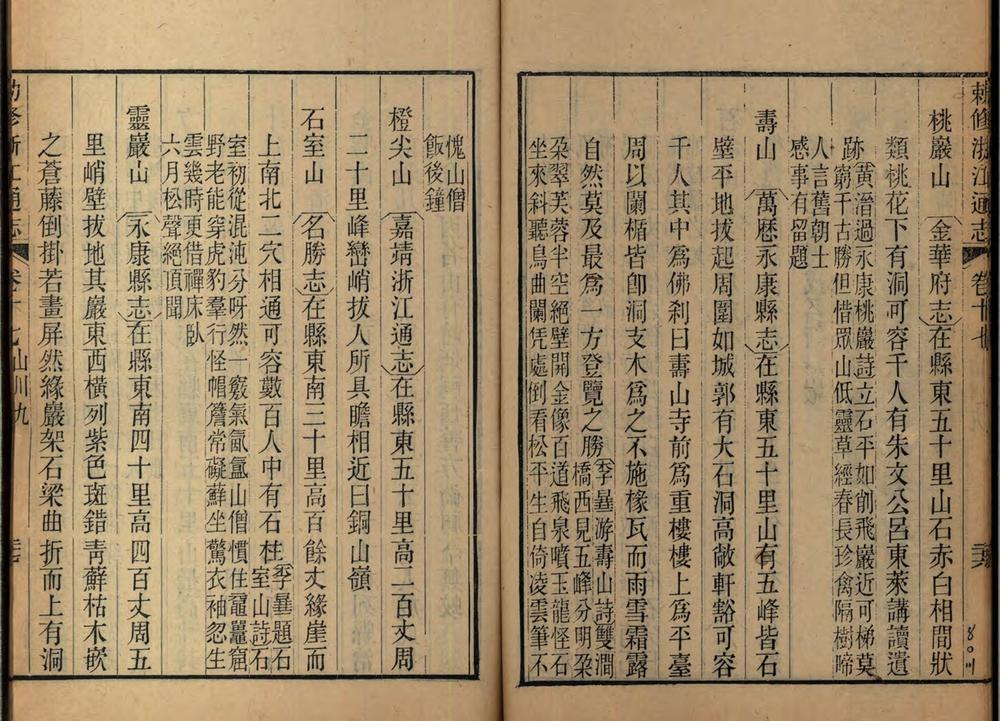 敕修浙江通志 卷十七
桃巖山 金華府志在縣東五十里山石赤白相間狀
類桃花下有洞可容千人有朱文公呂東萊講讀遺
跡黃溍過永康桃巖詩立石平如削飛巖近可梯莫
窮千古勝但惜眾山低靈草經春長珍禽隔樹啼
人言舊朝士
感事有留題
壽山 萬歷永康縣志在縣東五十里山有五峰皆石
壁平地拔起周圍如城郭有大石洞高敞軒豁可容
千人其中為佛刹曰壽山寺前為重樓樓上為平臺
周以闌楯皆卽洞支木為之不施椽瓦而雨雪霜露
自然莫及最為一方登覽之勝李曅游壽山詩雙澗
橋西見五峰分明朶
朶翠芙蓉半空絕壁開金像百道飛泉噴玉龍怪石
坐來斜聽鳥曲闌凭處倒看松平生自倚凌雲筆不
愧山僧
飯後鐘
橙尖山 嘉靖浙江通志在縣東五十里高二百丈周
二十里峰巒峭拔人所具瞻相近曰銅山嶺
石室山 名勝志在縣東南三十里高百餘丈緣崖而
上南北二穴相通可容數百人中有石柱李曅題石
室山詩石
室初從混沌分呀然一竅氣氤氳山僧慣住黿鼉窟
野老能穿虎豹羣行怪帽簷常礙蘚坐驚衣袖忽生
雲幾時更借禪床臥
六月松聲絕頂聞
靈巖山 永康縣志在縣東南四十里高四百丈周五
里峭壁拔地其巖東西橫列紫色斑錯靑蘚枯木嵌
之蒼藤倒掛若畫屏然緣巖架石梁曲折而上有洞
敕修浙江通志 卷十七山川九